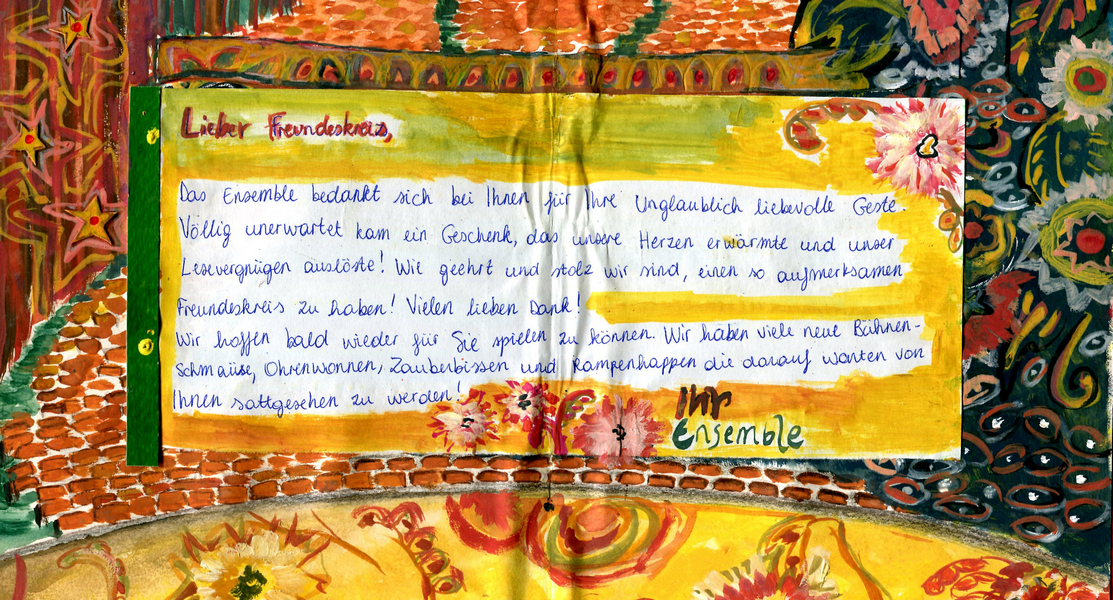 Lieber Freundeskreis,
Das Ensemble bedankt sich bei Ihnen für Ihre Unglaublich liebevolle Geste.
Völlig unerwartet kam ein Geschenk, das unsere Herzen erwärmte und unser
Lesevergnügen auslöste! Wie geehrt und stolz wir sind, einen so aufmerksamen
Freundeskreis zu haben! Vielen lieben Dank!
Wir hoffen bald wieder für Sie spielen zu können. Wir haben viele neue Bühnen-
schmäuse, Ohrenwonnen, Zauberbissen und Rampenhappen die darauf warten von
Ihnen sattgesehen zu werden!
Ihr
Ensemble